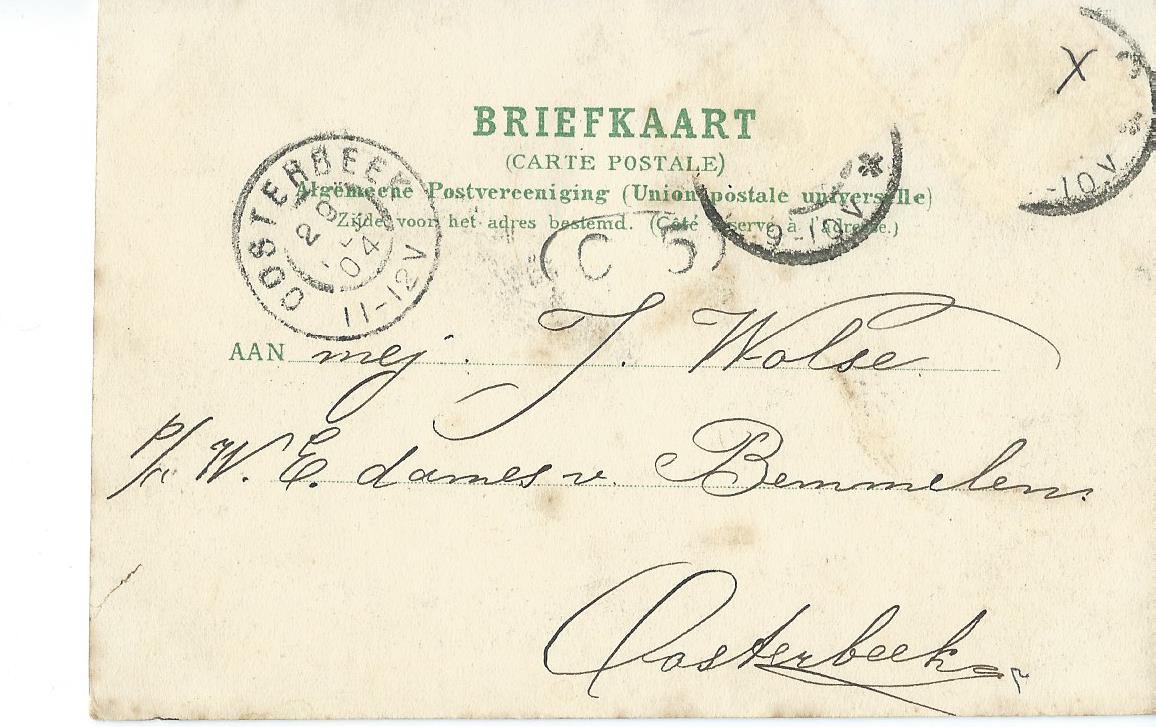 X
BRIEFKAART
(CARTE POSTALE)
Algemeene Postvereeniging (Union postale universelle)
Zijde voor het adres bestemd. (Côté réservé à l'adresse.)
OOSTERBEEK
28
04
11-12V
9-10V
-10V
C 5
AAN mej. J. Wolse
p/a W. E. dames v. Bemmelen.
Oosterbeek